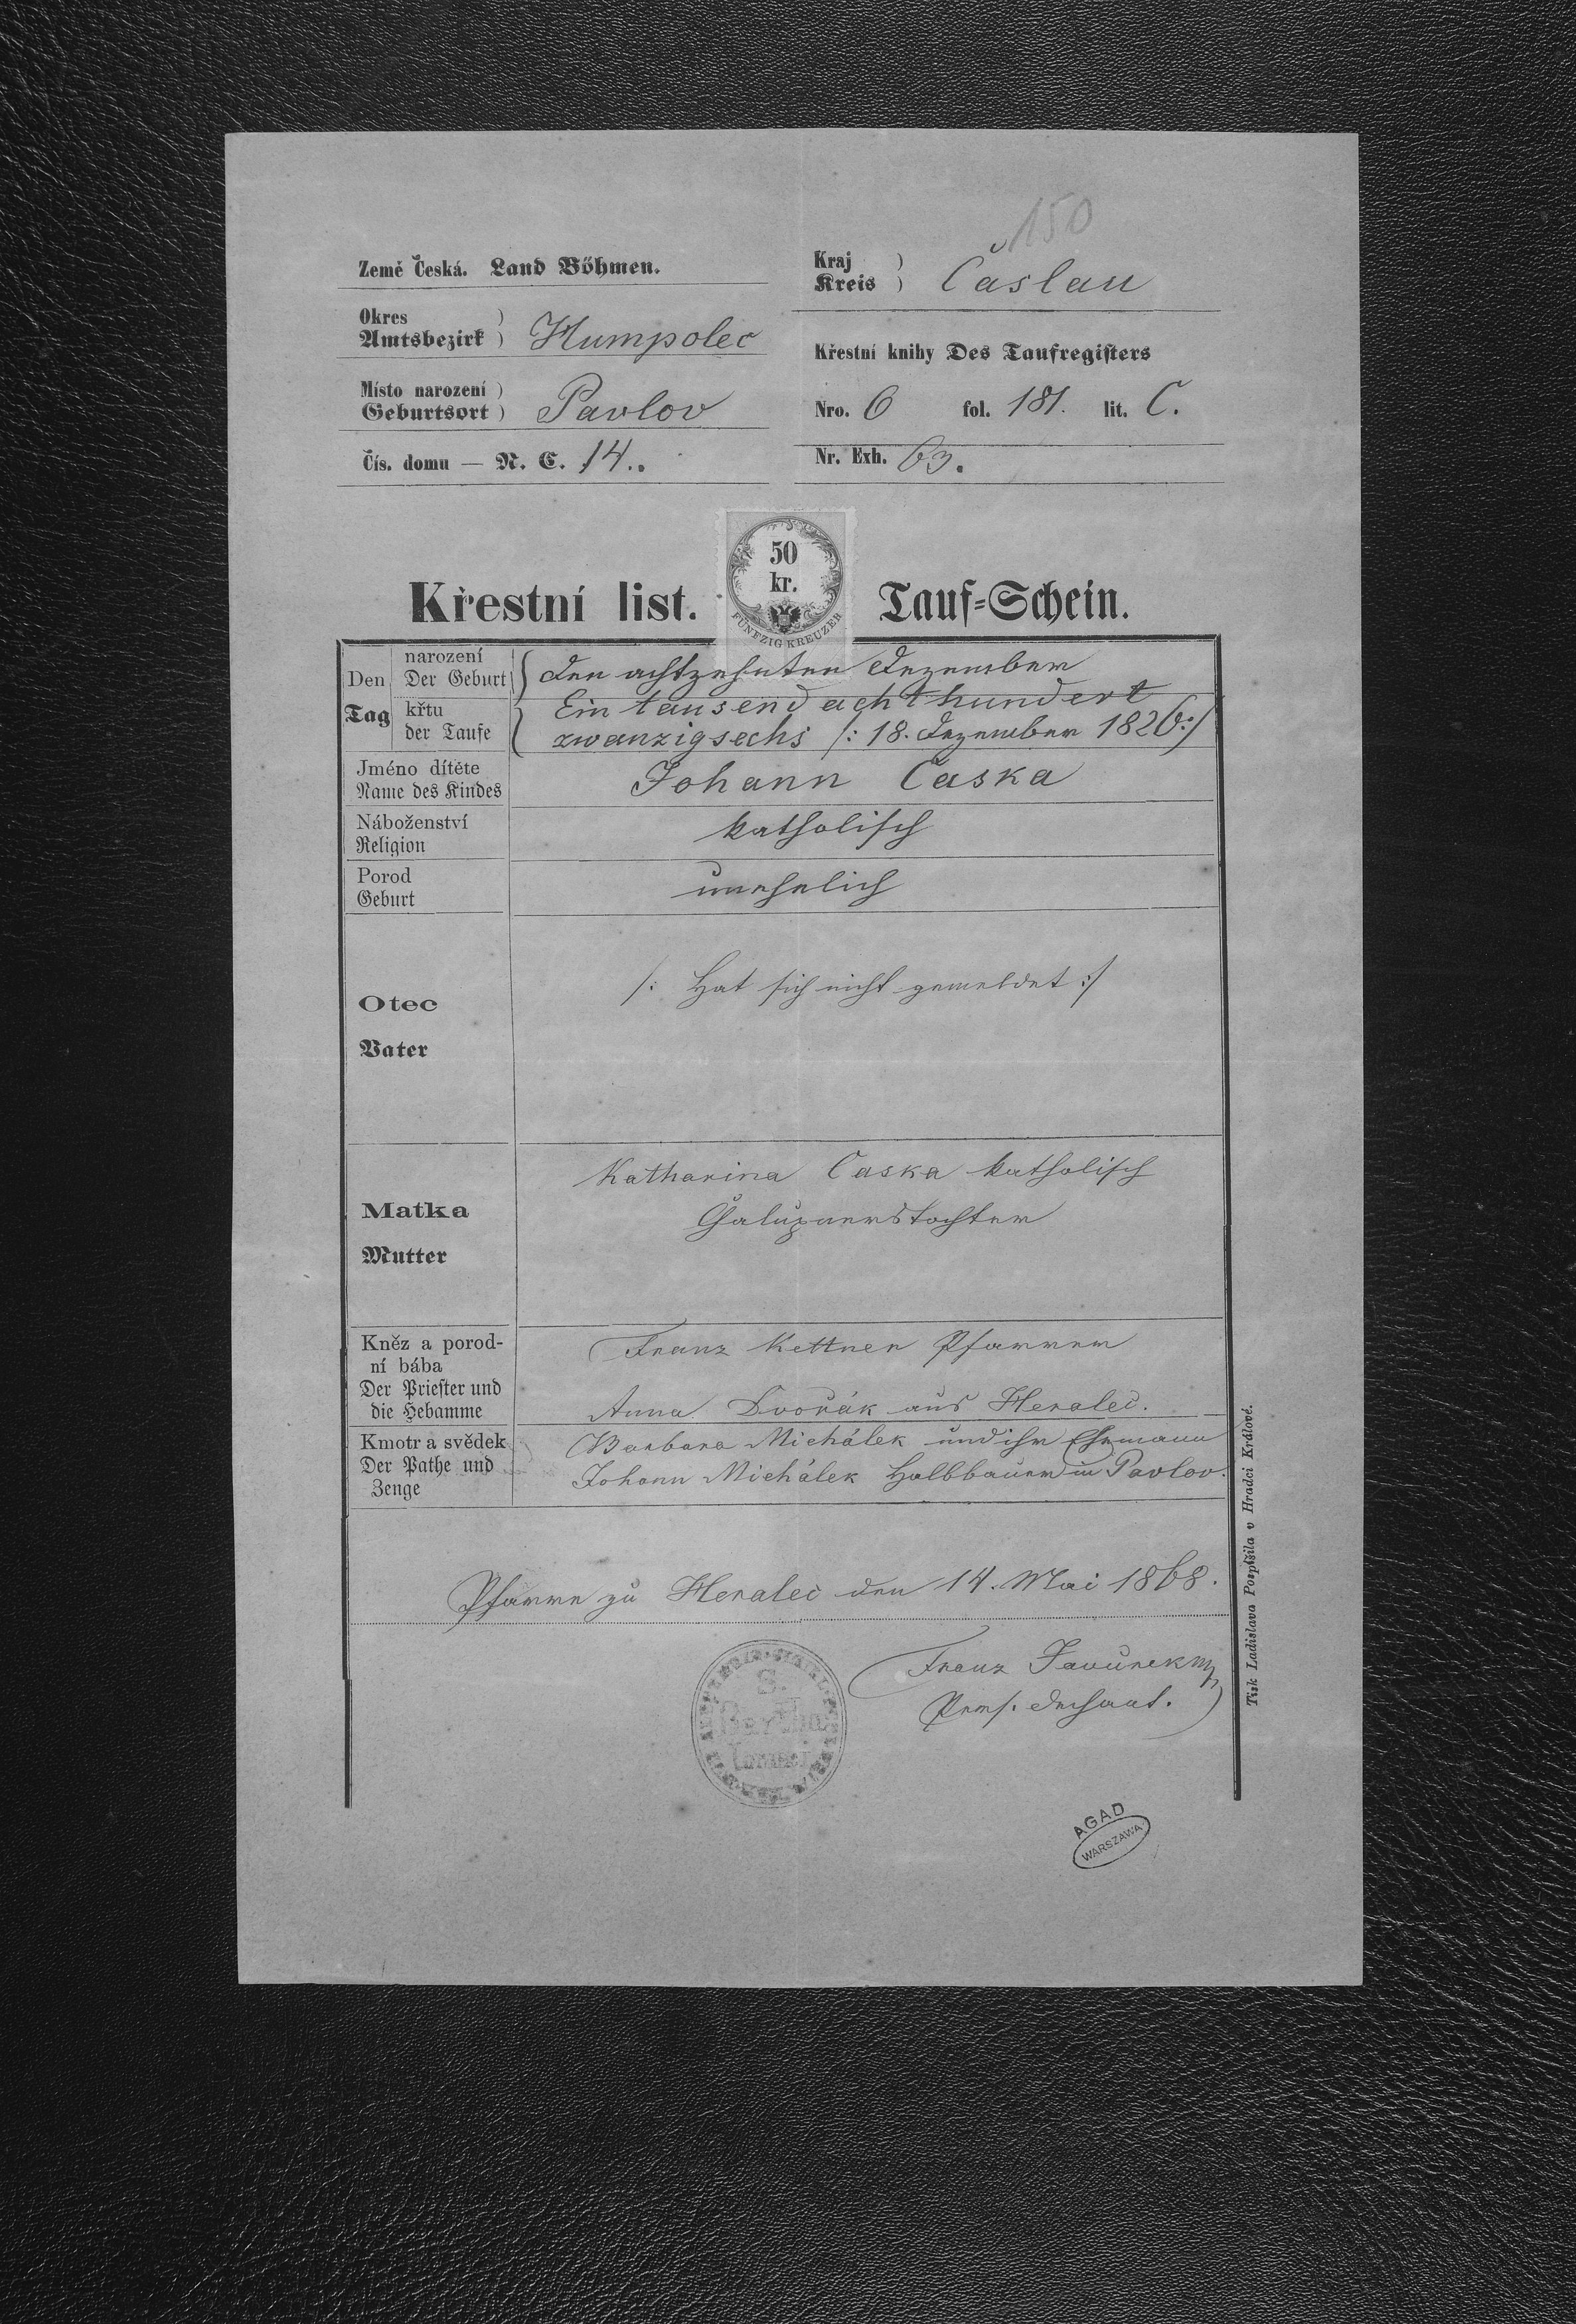 150
Země Česká. Land Böhmen.
Kraj
Kreis Časlau
Okres
Amtsbezirk Humpolec
Křestní knihy Des Taufregisters
Místo narození
Geburtsort Pavlov
Nro. 6 fol. 181. lit. C.
Čís. domu — N. C. 14.
Nr. Exh. 63.
50
kr.
FÜNFZIG KREUZER
Křestní list. Tauf=Schein.
Den narození
Der Geburt den achtzehnten Dezember
Tag křtu
der Taufe Ein tausend achthundert
zwanzigsechs /: 18. Dezember 1826 :/
Jméno dítěte
Name des Kindes Johann Časka
Náboženství
Religion katholisch
Porod
Geburt unehelich
Otec
Vater /: Hat sich nicht gemeldet :/
Matka
Mutter Katharina Caska katholisch
Chaluppnerstochter
Kněz a porod-
ní bába
Der Priester und
die Hebamme
Franz Kettner Pfarrer
Anna Dvořák aus Heralec.
Kmotr a svědek
Der Pathe und
Zeuge
Barbara Michálek und ihr Ehemann
Johann Michálek Halbbauer in Pavlov.
Pfarre zu Heralec den 14. Mai 1868.
Franz Javůrek mp
Pers. Dechant.
S.
Bartho
lomaei
Tisk Ladislava Pospíšila v Hradci Králové.
AGAD
WARSZAWA